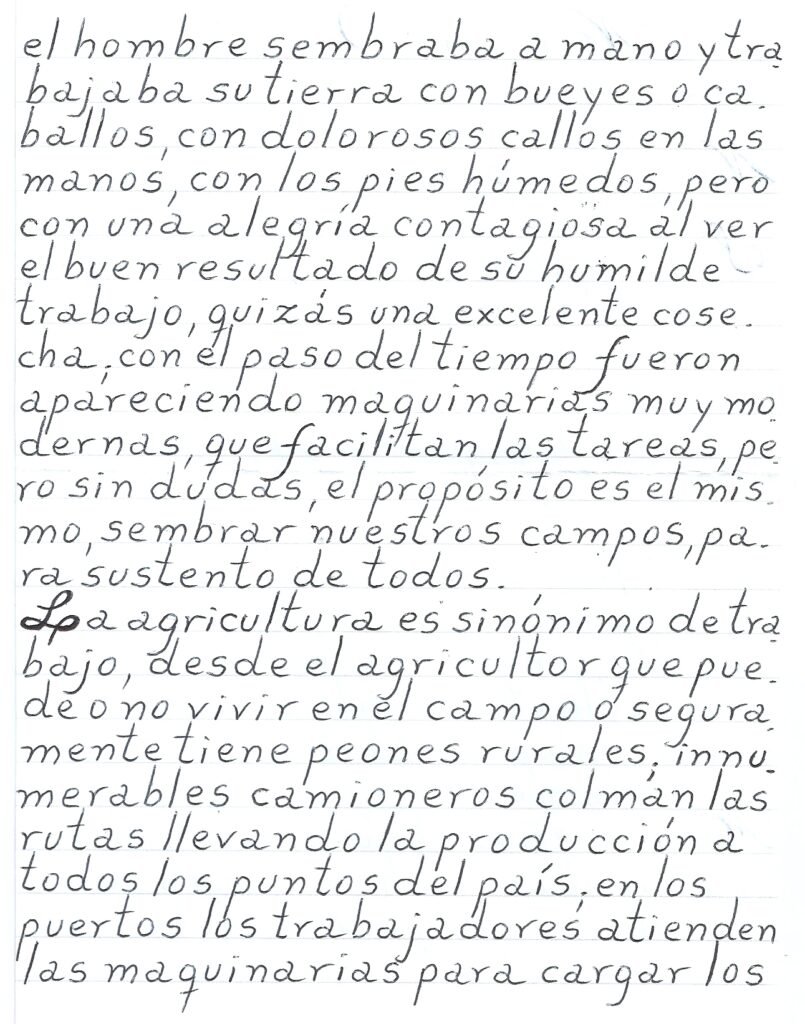 el hombre sembraba a mano y tra
bajaba su tierra con bueyes o ca.
ballos, con dolorosos callos en las
manos, con los pies húmedos, pero
con una alegría contagiosa al ver
el buen resultado de su humilde
trabajo, quizás una excelente cose.
cha; con el paso del tiempo fueron
apareciendo maquinarias muy mo
dernas, que facilitan las tareas, pe
ro sin dudas, el propósito es el mis.
mo, sembrar nuestros campos, pa.
ra sustento de todos.
La agricultura es sinónimo de tra
bajo, desde el agricultor que pue.
de o no vivir en el campo o segura.
mente tiene peones rurales; innu.
merables camioneros colman las
rutas llevando la producción a
todos los puntos del país; en los
puertos los trabajadores atienden
las maquinarias para cargar los